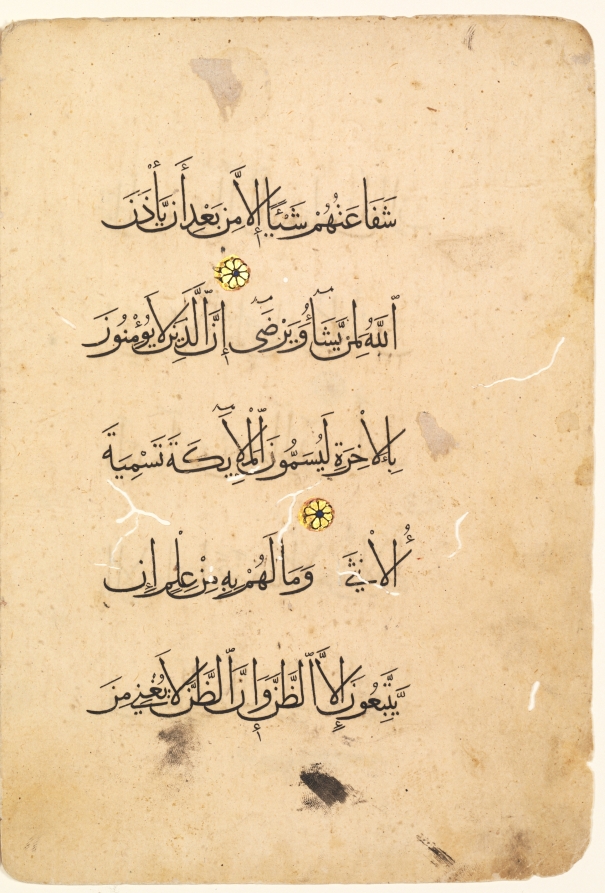 شَفَاعَتُهُمْ شَيْئًا إِلَّا مِن بَعْدِ أَن يَأْذَنَ
ٱللَّهُ لِمَن يَّشَآءُ وَيَرْضَىٓ إِنَّ ٱلَّذِينَ لَا يُؤْمِنُونَ
بِٱلْأَخِرَةِ لَيُسَمُّونَ ٱلْمَلَٰٓئِكَةَ تَسْمِيَةَ
ٱلْأُنثَىٰ وَمَا لَهُمْ بِهِ مِنْ عِلْمٍ إِن
يَّتَّبِعُونَ إِلَّا ٱلظَّنَّ وَإِنَّ ٱلظَّنَّ لَا يُغْنِي مِنَ